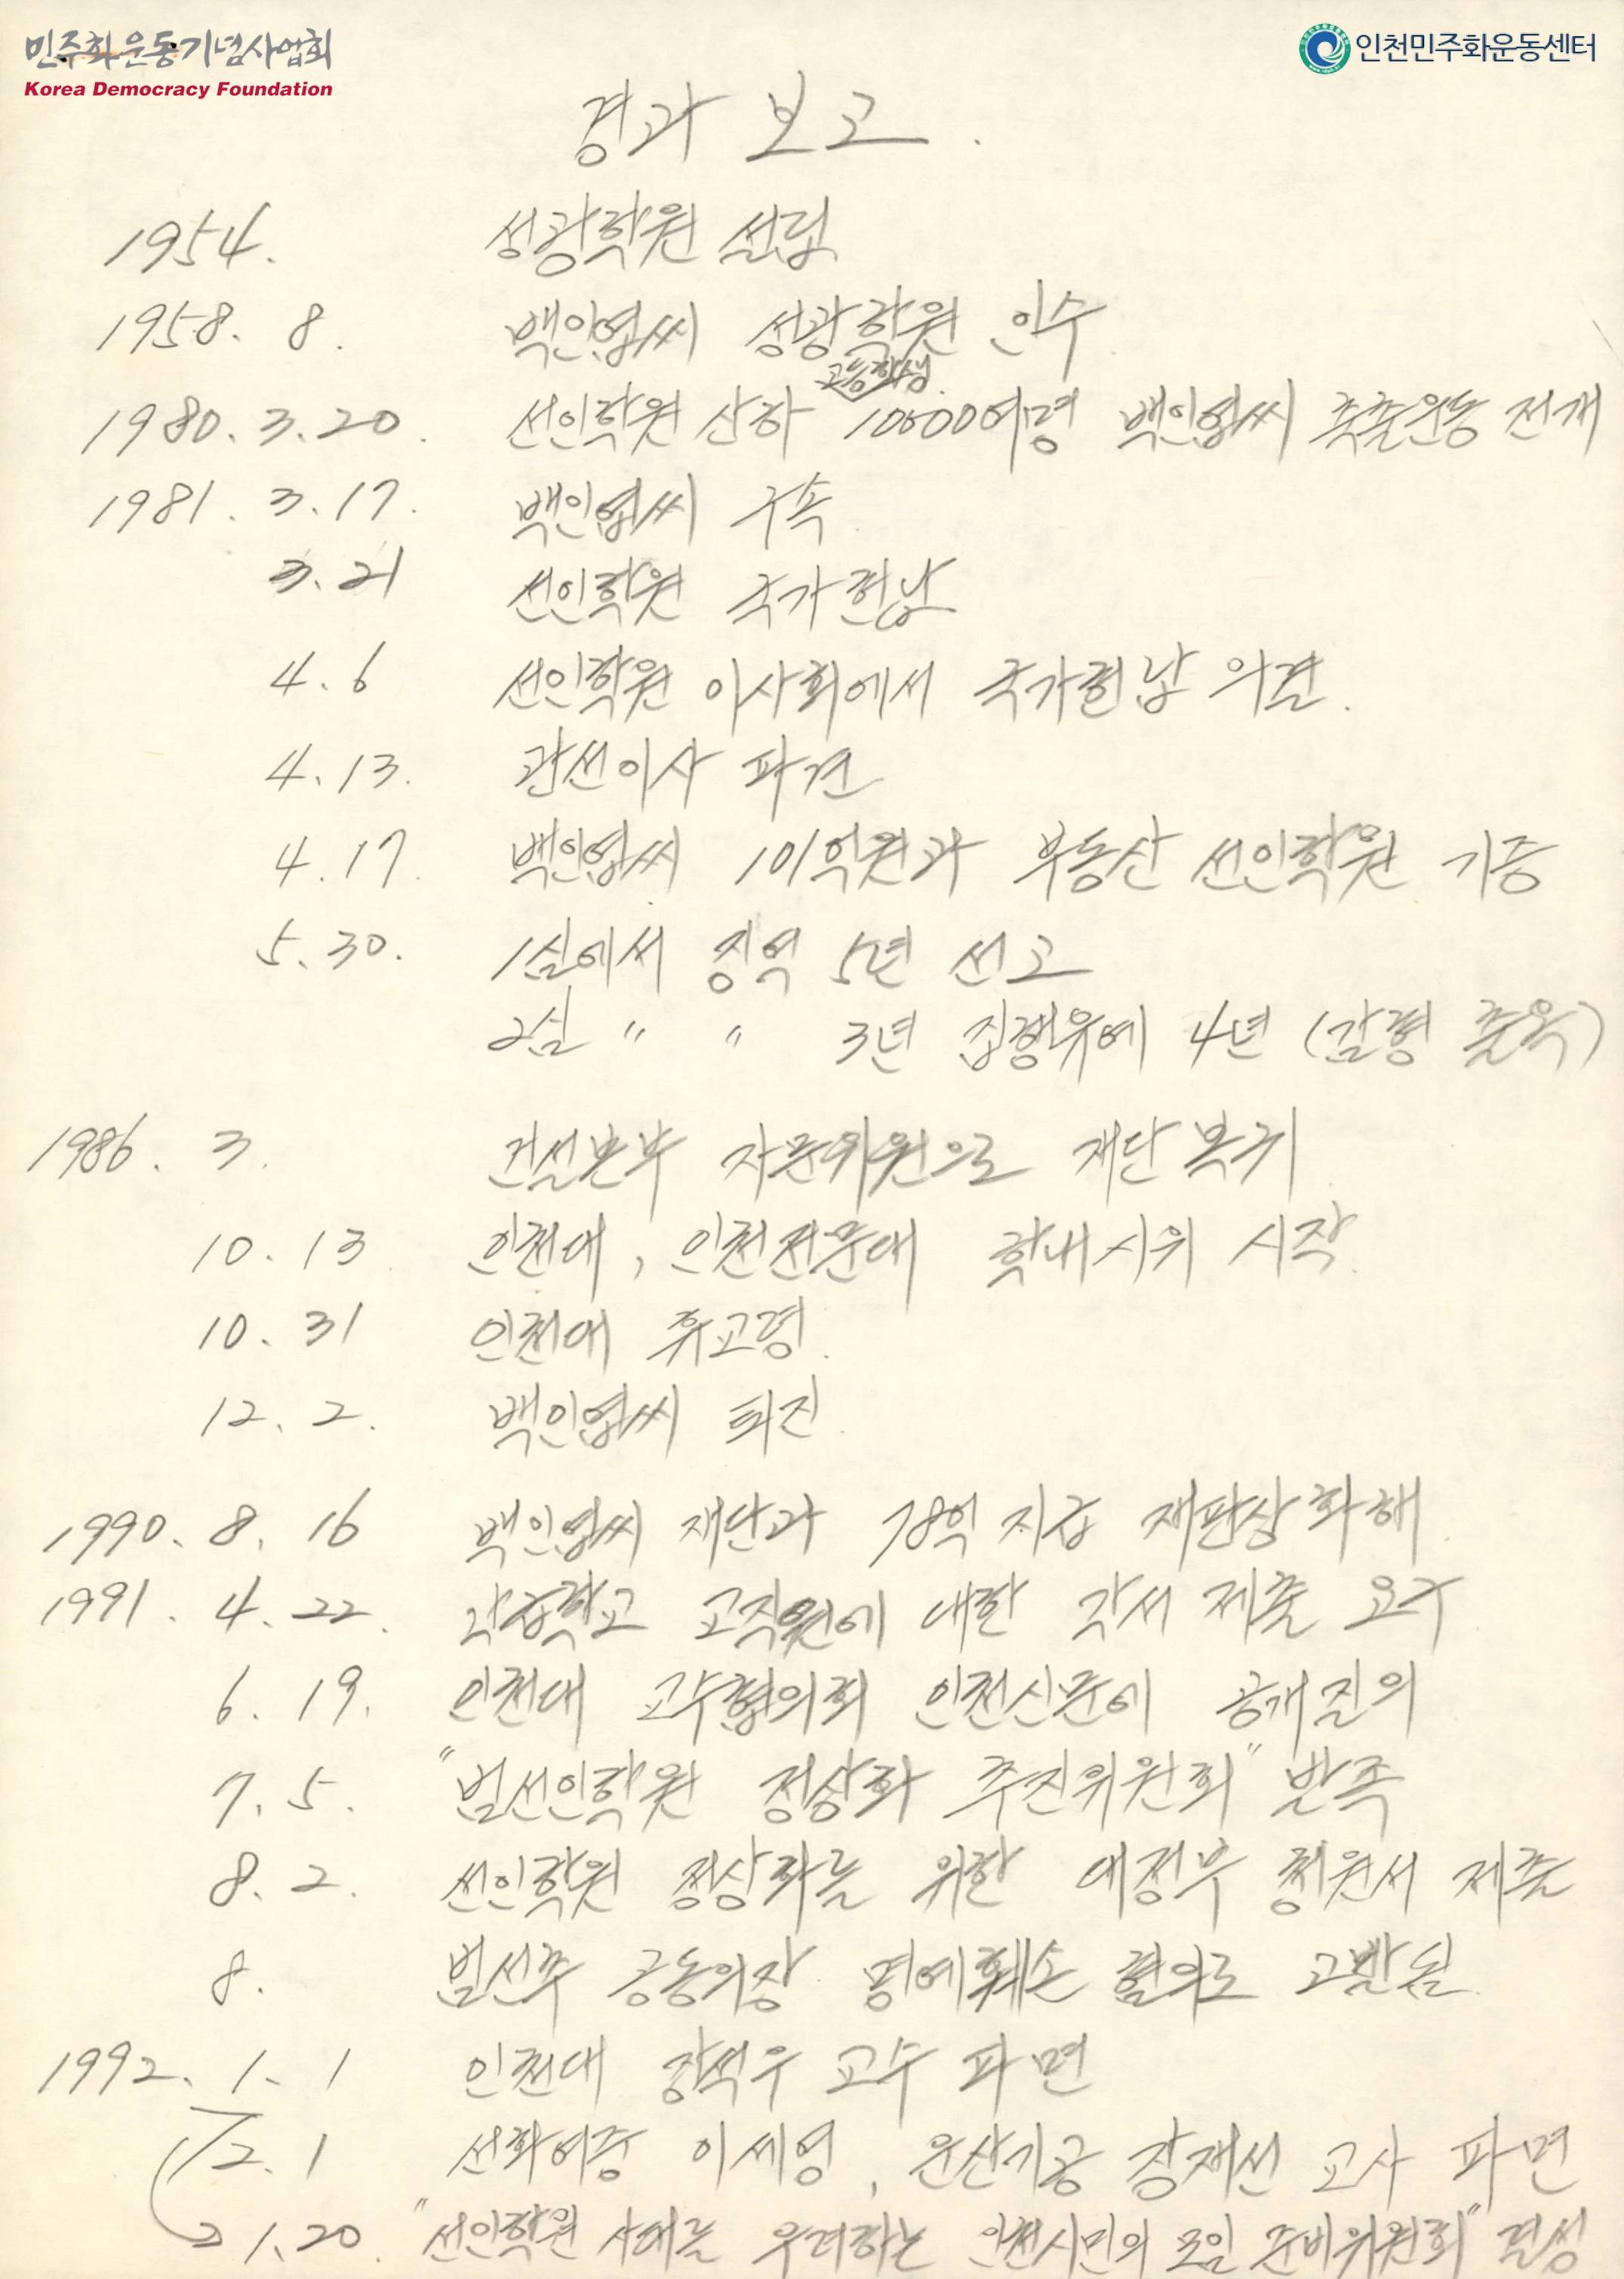 민주화운동기념사업회
Korea Democracy Foundation
인천민주화운동센터
경과 보고.
1954. 성광학원 설립
1958. 8. 백인엽씨 성광학원 인수
고등학생
1980. 3. 20. 선인학원 산하 10000여명 백인엽씨 축출운동 전개
1981. 3. 17. 백인엽씨 구속
3. 21 선인학원 국가헌납
4. 6 선인학원 이사회에서 국가헌납 의결.
4. 13. 관선이사 파견
4. 17. 백인엽씨 101억원과 부동산 선인학원 기증
5. 30. 1심에서 징역 5년 선고
2심 〃 〃 3년 집행유예 4년 (감형 출옥)
1986. 3. 건설본부 자문위원으로 재단복귀
10. 13 인천대, 인천전문대 학내시위 시작.
10. 31 인천대 휴교령.
12. 2. 백인엽씨 퇴진.
1990. 8. 16 백인엽씨 재단과 78억 지급 재판상 화해.
1991. 4. 22. 각급학교 교직원에 대한 각서 제출 요구
6. 19. 인천대 교수협의회 인천신문에 공개질의
7. 5. "범선인학원 정상화 추진위원회" 발족
8. 2. 선인학원 정상화를 위한 대정부 청원서 제출
8. 범선추 공동의장 명예훼손 혐의로 고발됨.
1992. 1. 1 인천대 장석우 교수 파면
2. 1 선화여중 이세영, 운산기공 장재선 교사 파면
1. 20. "선인학원 사태를 우려하는 인천시민의 모임 준비위원회" 결성